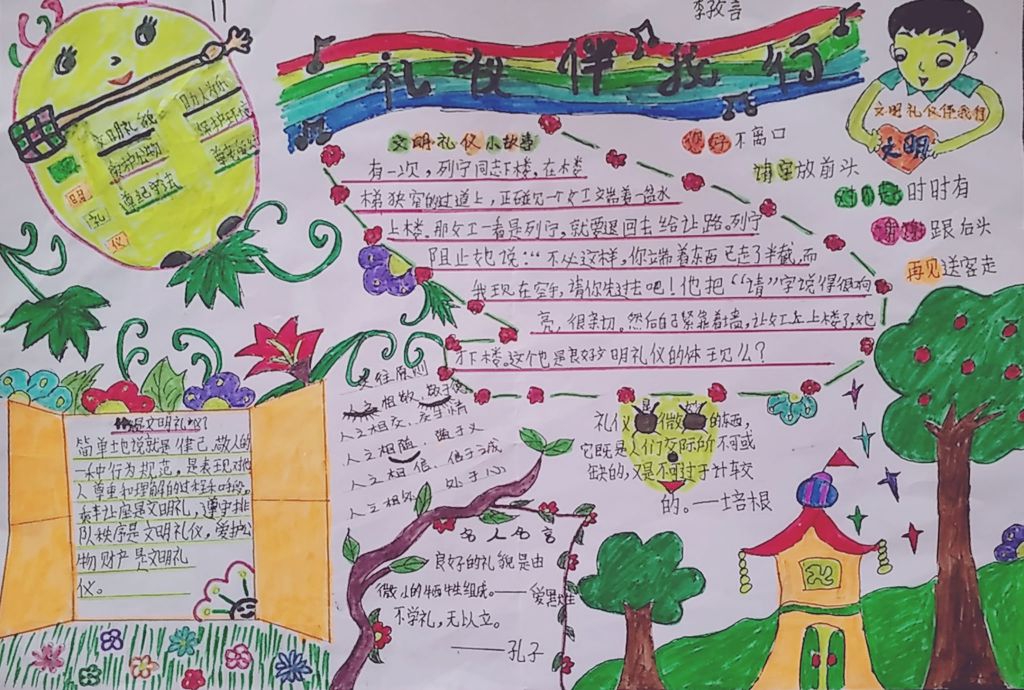 李孜言
礼仪伴我行
助人为乐
文明礼貌
保护环境
爱护公物
尊老爱幼
遵纪守法
明
礼
仪
文明礼仪小故事
有一次,列宁同志下楼,在楼
梯狭窄的过道上,正碰见一个女工端着一盆水
上楼。那女工一看是列宁,就要退回去给让路。列宁
阻止她说:“不必这样,你端着东西已走了半截,而
我现在空手,请你先过去吧!他把“请”字说得很响
亮,很亲切。然后自己紧靠着墙,让女工上楼了,他
才下楼。这不也是良好文明礼仪的体现么?
您好不离口
请字放前头
对不起时时有
跟后头
再见送客走
文明礼仪伴我们
文明
交往原则
人之相敬,敬于德
人之相交,交于情
人之相随,随于义
人之相信,信于诚
人之相处,处于心
是文明礼仪?
简单地说就是律己、敬人的
一种行为规范,是表现对他
人尊重和理解的过程和手段。
让座是文明礼,遵守排
队秩序是文明礼仪,爱护公
物财产是文明礼
仪。
礼仪是微妙的东西,
它既是人们交际所不可或
缺的,又是不可过于计较
的。——培根
名人名言
良好的礼貌是由
微小的牺牲组成。——爱默生
不学礼,无以立。
——孔子